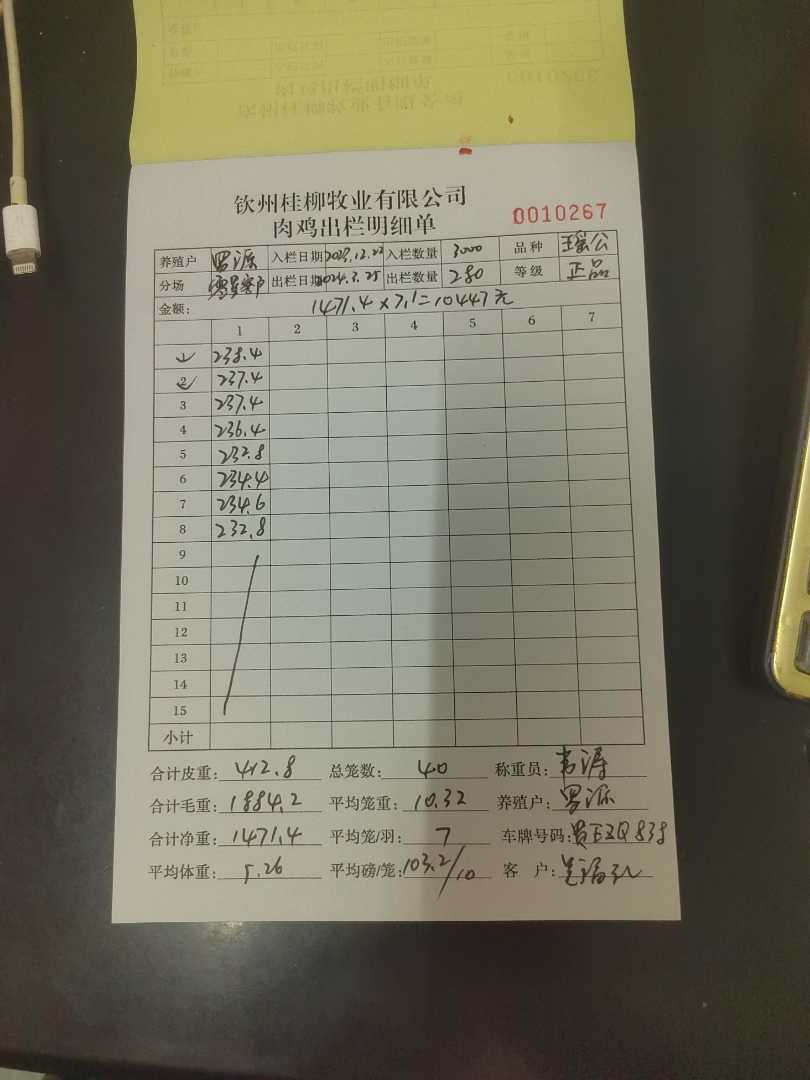 钦州桂柳牧业有限公司
肉鸡出栏明细单 0010267
养殖户 罗源 入栏日期 2023.12.22 入栏数量 3000 品种 瑶公
分场 出栏日期 2024.3.25 出栏数量 280 等级 正品
金额： 1471.4×7.1=10447元
1 2 3 4 5 6 7
1 238.4
2 237.4
3 237.4
4 236.4
5 232.8
6 234.4
7 234.6
8 232.8
9
10
11
12
13
14
15
小计
合计皮重： 412.8 总笼数： 40 称重员： 韦涛
合计毛重： 1884.2 平均笼重： 10.32 养殖户： 罗源
合计净重： 1471.4 平均笼/羽： 7 车牌号码： 贵EZQ838
平均体重： 5.26 平均磅/笼： 103.2/10 客 户：